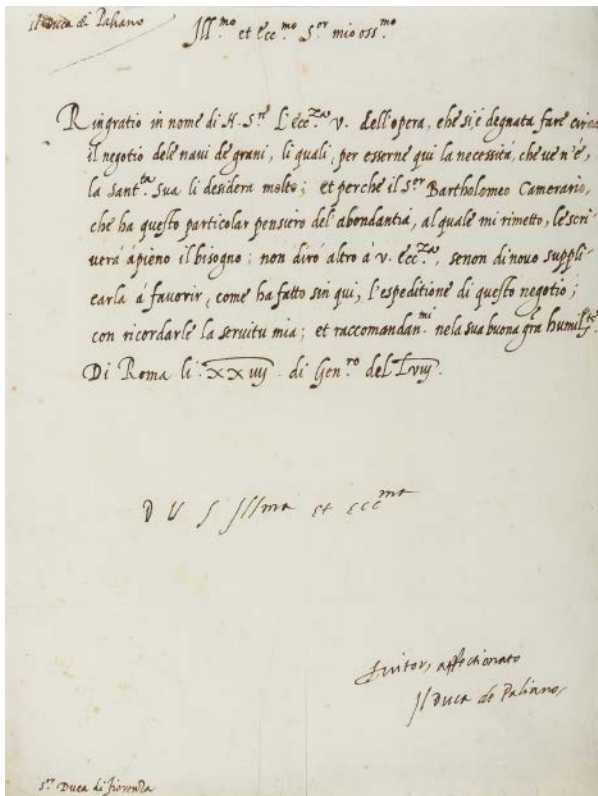 Il Duca di Paliano
Ill.mo et Ecc.mo S.or mio oss.mo
Ringratio in nome di N. S.re l'ecc.za v. dell'opera, che si è degnata fare circa
il negotio dele navi de grani, li quali, per esserne qui la necessità, che ve n'è,
la Sant.tà Sua li desidera molto; et perche il S.or Bartholomeo Camerario,
che ha questo particolar pensiero del' abondantia, al quale mi rimetto, le scri-
verà àpieno il bisogno; non dirò altro à v. ecc.za, senon dinovo suppli-
carla à favorir, come ha fatto sin quì, l'espeditione di questo negotio;
con ricordarle la servitu mia; et raccomandan.mi nela sua buona gra humilte.
Di Roma li XXiiij di Gen.ro del Lviij.
D V S Illma et ecc.ma
Servitor, affectionato
Il Duca de Paliano,
S.or Duca di Fiorenza